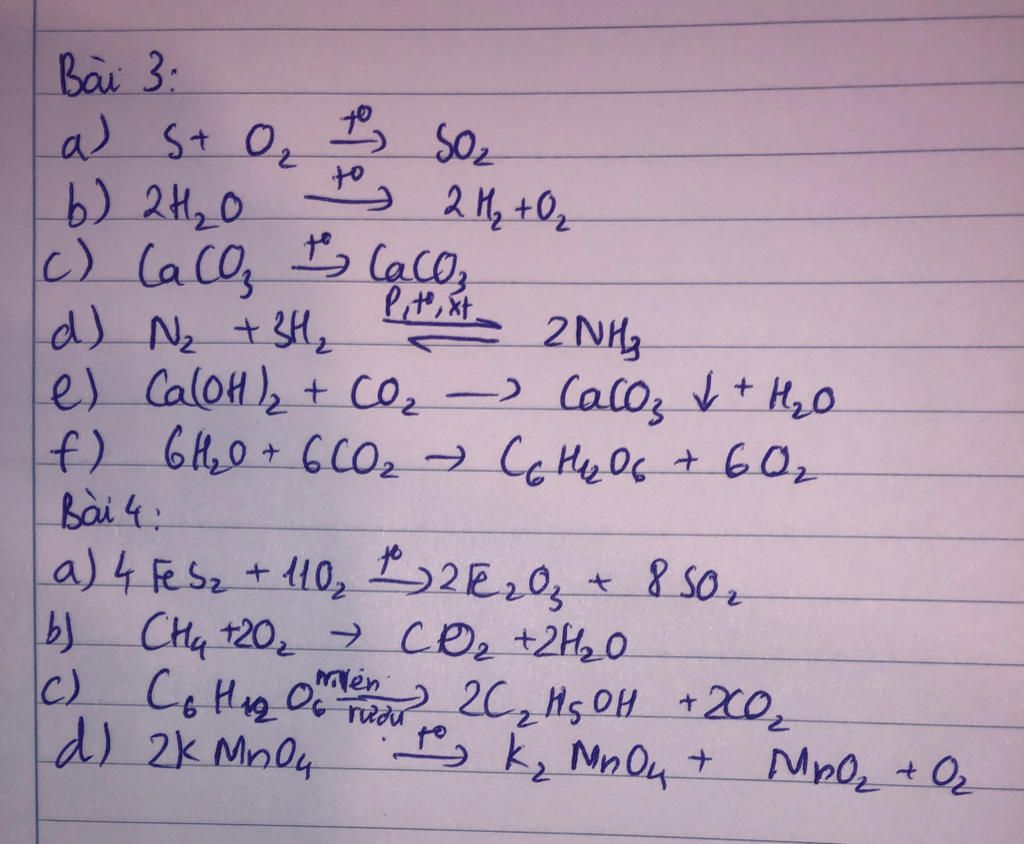 Bài 3:
a) S + O₂ →(t°) SO₂
b) 2H₂O →(t°) 2H₂ + O₂
c) CaCO₃ →(t°) CaCO₃
d) N₂ + 3H₂ ⇌(P, t°, xt) 2NH₃
e) Ca(OH)₂ + CO₂ → CaCO₃ ↓ + H₂O
f) 6H₂O + 6CO₂ → C₆H₁₂O₆ + 6O₂
Bài 4:
a) 4FeS₂ + 11O₂ →(t°) 2Fe₂O₃ + 8SO₂
b) CH₄ + 2O₂ → CO₂ + 2H₂O
c) C₆H₁₂O₆ →(men rượu) 2C₂H₅OH + 2CO₂
d) 2KMnO₄ →(t°) K₂MnO₄ + MnO₂ + O₂